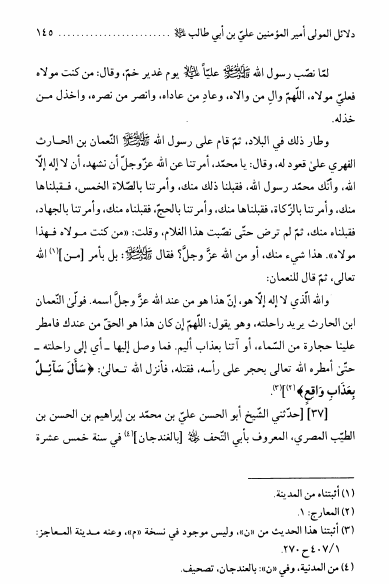 دلائل المولى أمير المؤمنين عليّ بن أبي طالب ﷺ ........................ ١٤٥
لمّا نصّب رسول الله ﷺ عليّاً ﷺ يوم غدير خمّ، وقال: من كنت مولاه
فعليّ مولاه، اللّهمّ والِ من والاه، وعادِ من عاداه، وانصر من نصره، واخذل مـن
خذله.
وطار ذلك في البلاد، ثمّ قام على رسول الله ﷺ النّعمان بن الحارث
الفهري علىٰ قعود له، وقال: يا محمّد، أمرتنا عن الله عزّوجلّ أن نشهد، أن لا إله إلّا
الله، وأنّك محمّد رسول الله، فقبلنا ذلك منك، وأمرتنا بالصّلاة الخمس، فـقبلناها
منك، وأمرتنا بالزّكاة، فقبلناها منك، وأمرتنا بالحجّ، فقبلناه منك، وأمرتنا بالجهاد،
فقبلناه منك، ثمّ لم ترض حتّى نصّبت هذا الغلام، وقلت: «من كنت مـولاه فـهذا
مولاه». هذا شيء منك، أو من الله عزّ وجلّ؟ فقال ﷺ: بل بأمر [مـن](١) الله
تعالى، ثمّ قال للنعمان:
والله الّذي لا إله إلّا هو، إنّ هذا هو من عند الله عزّ وجلّ اسمه. فولّىٰ النّعمان
ابن الحارث يريد راحلته، وهو يقول: اللّهمّ إن كان هذا هو الحقّ من عندك فامطر
علينا حجارة من السّماء، أو آتنا بعذاب أليم. فما وصل إليها ـ أي إلى راحلته ـ
حتّىٰ أمطره الله تعالى بحجر على رأسه، فقتله، فأنزل الله تـعالىٰ: ﴿سَأَلَ سَآئِـلٌ
بِعَذَابٍ وَاقِعٍ﴾(٢)](٣).
[٣٧] [حدّثني الشّيخ أبو الحسن عليّ بن محمّد بن إبراهيم بن الحسن بن
الطّيّب المصري، المعروف بأبي التّحف ﷺ [بالغندجان](٤) في سنة خمس عشرة
(١) أثبتناه من المدينة.
(٢) المعارج: ١.
(٣) أثبتنا هذا الحديث من «ن»، وليس موجود في نسخة «م»، وعنه مـدينة المـعاجز:
١/ ٤٠٧ ح ٢٧٠.
(٤) من المدنية، وفي «ن»: بالعندجان، تصحيف.